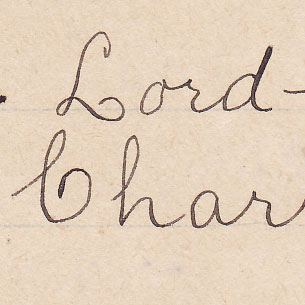 Lord-
Char